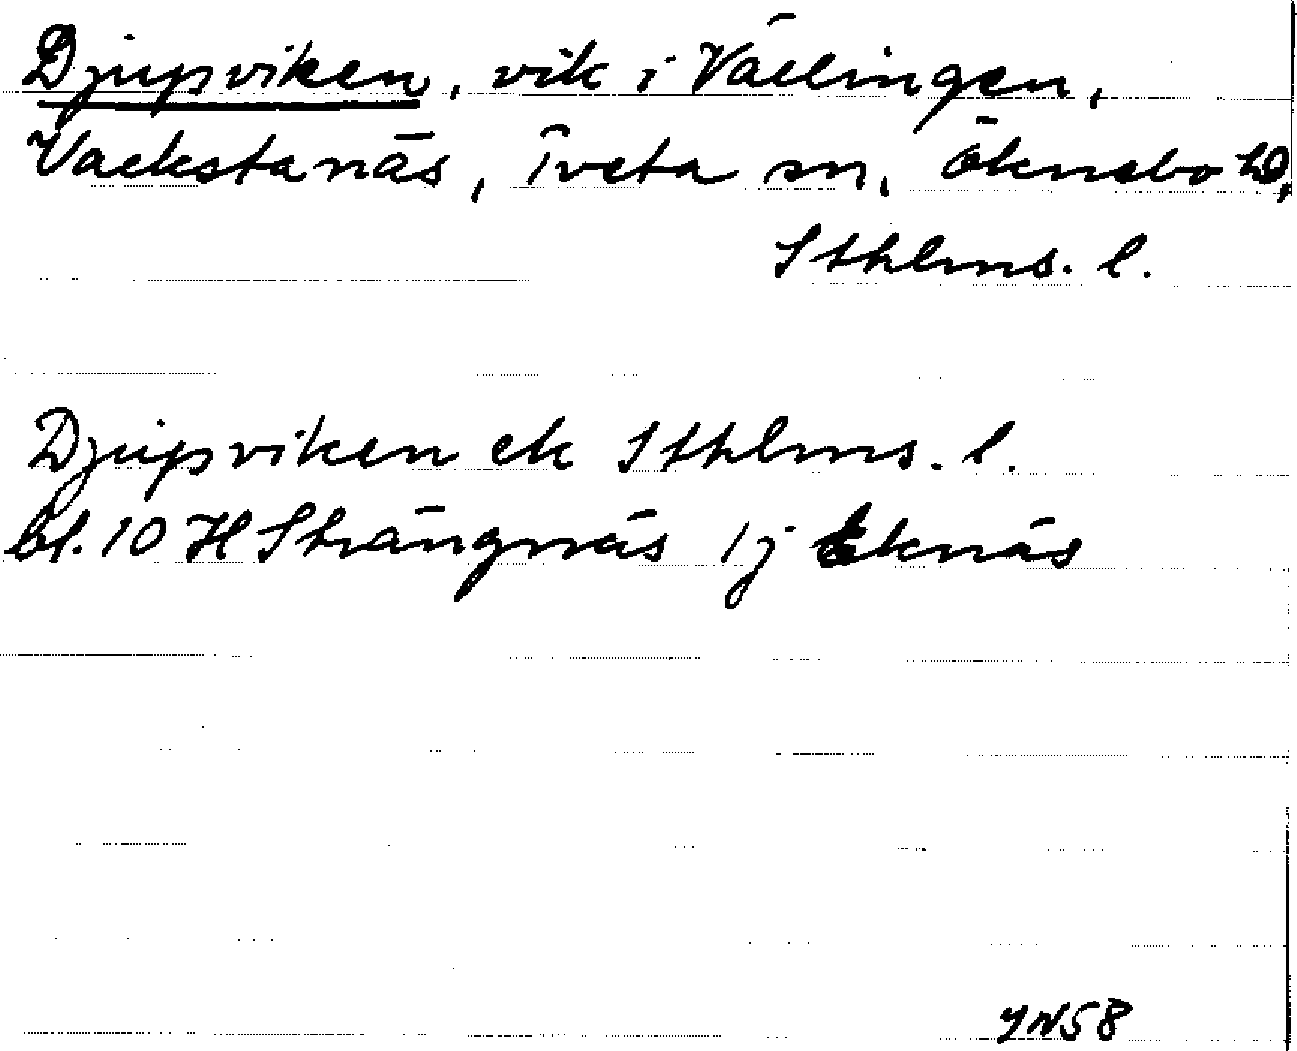 Djupviken, vik i Vällingen,
Vackstanäs, Tveta sn, Öknebo hd,
Sthlms. l.
Djupviken ek Sthlms. l.
bl. 10 H Strängnäs 1j Eknäs
YN58